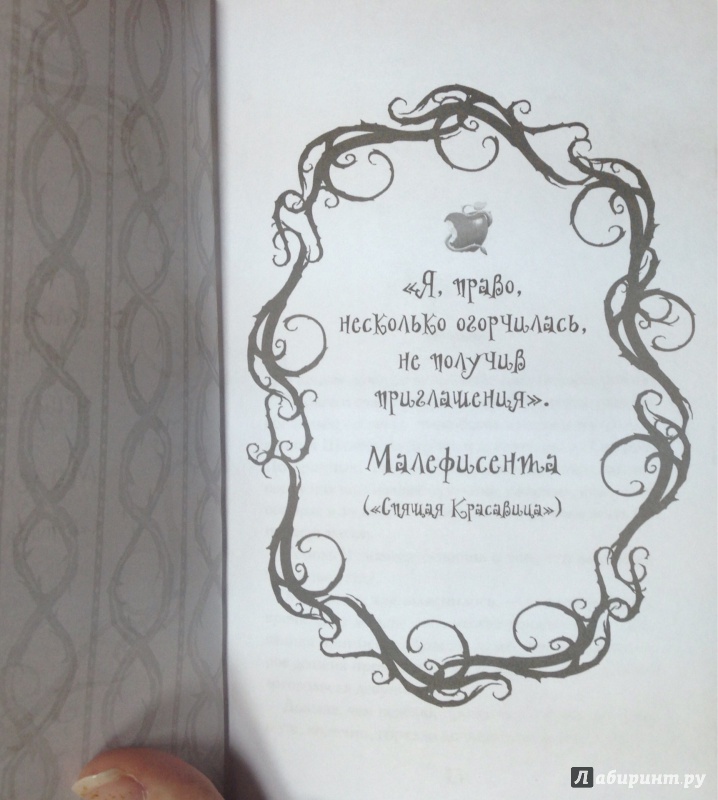 «Я, право,
несколько огорчилась,
не получив
приглашения».
Малефисента
(«Спящая Красавица»)
Лабиринт.ру